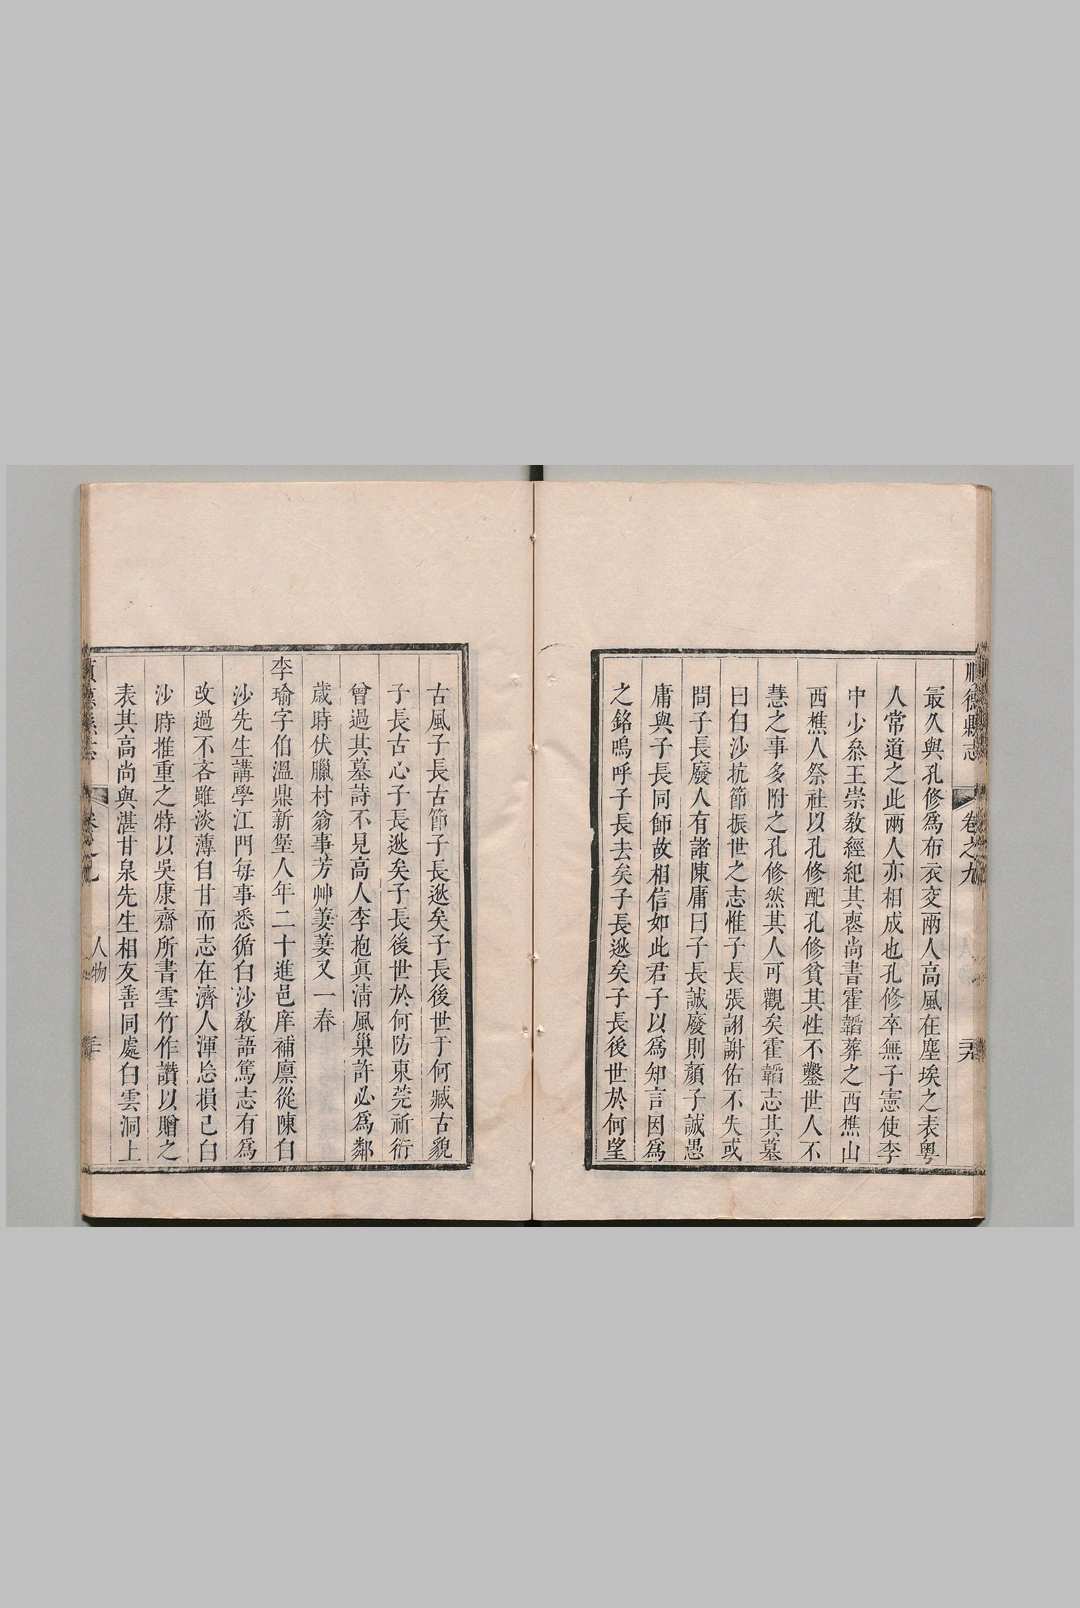 順德縣志 卷之九
最久與孔修爲布衣交兩人高風在塵埃之表粵
人常道之此兩人亦相成也孔修卒無子憲使李
中少叅王崇教經紀其喪尚書霍韜葬之西樵山
西樵人祭社以孔修配孔修貧其性不鑿世人不
慧之事多附之孔修然其人可觀矣霍韜志其墓
曰白沙抗節振世之志惟子長張詡謝佑不失或
問子長廢人有諸陳庸曰子長誠廢則顏子誠愚
庸與子長同師故相信如此君子以爲知言因爲
之銘嗚呼子長去矣子長逖矣子長後世於何望
古風子長古節子長逖矣子長後世于何臧古貌
子長古心子長逖矣子長後世於何防東莞祈衍
曾過其墓詩不見高人李抱眞淸風巢許必爲鄰
歲時伏臘村翁事芳艸萋萋又一春
李瑜字伯溫鼎新堡人年二十進邑庠補廪從陳白
沙先生講學江門每事悉循白沙敎語篤志有爲
改過不吝雖淡薄自甘而志在濟人渾忘損己白
沙時推重之特以吳康齋所書雪竹作讚以贈之
表其高尚與湛甘泉先生相友善同處白雲洞上
順德縣志 卷之九 人物 三十